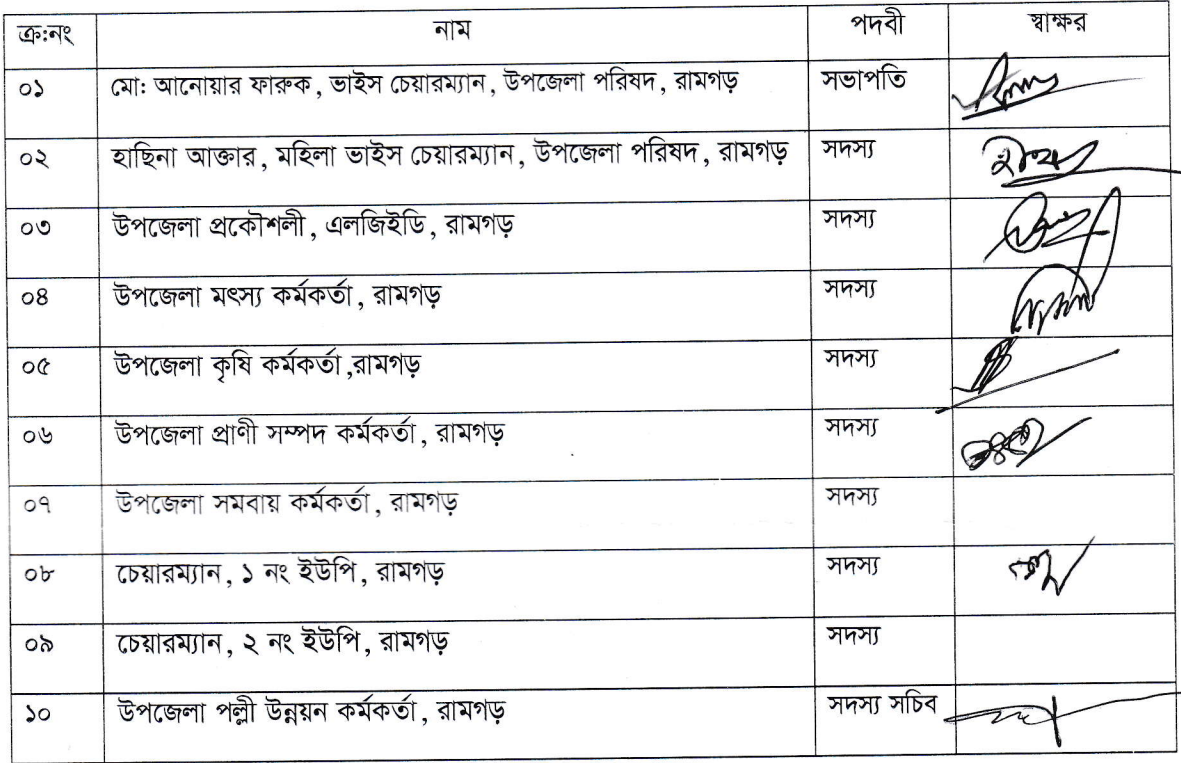 ক্র:নং নাম পদবী স্বাক্ষর
০১ মো: আনোয়ার ফারুক, ভাইস চেয়ারম্যান, উপজেলা পরিষদ, রামগড় সভাপতি
০২ হাছিনা আক্তার, মহিলা ভাইস চেয়ারম্যান, উপজেলা পরিষদ, রামগড় সদস্য
০৩ উপজেলা প্রকৌশলী, এলজিইডি, রামগড় সদস্য
০৪ উপজেলা মৎস্য কর্মকর্তা, রামগড় সদস্য
০৫ উপজেলা কৃষি কর্মকর্তা,রামগড় সদস্য
০৬ উপজেলা প্রাণী সম্পদ কর্মকর্তা, রামগড় সদস্য
০৭ উপজেলা সমবায় কর্মকর্তা, রামগড় সদস্য
০৮ চেয়ারম্যান, ১ নং ইউপি, রামগড় সদস্য
০৯ চেয়ারম্যান, ২ নং ইউপি, রামগড় সদস্য
১০ উপজেলা পল্লী উন্নয়ন কর্মকর্তা, রামগড় সদস্য সচিব